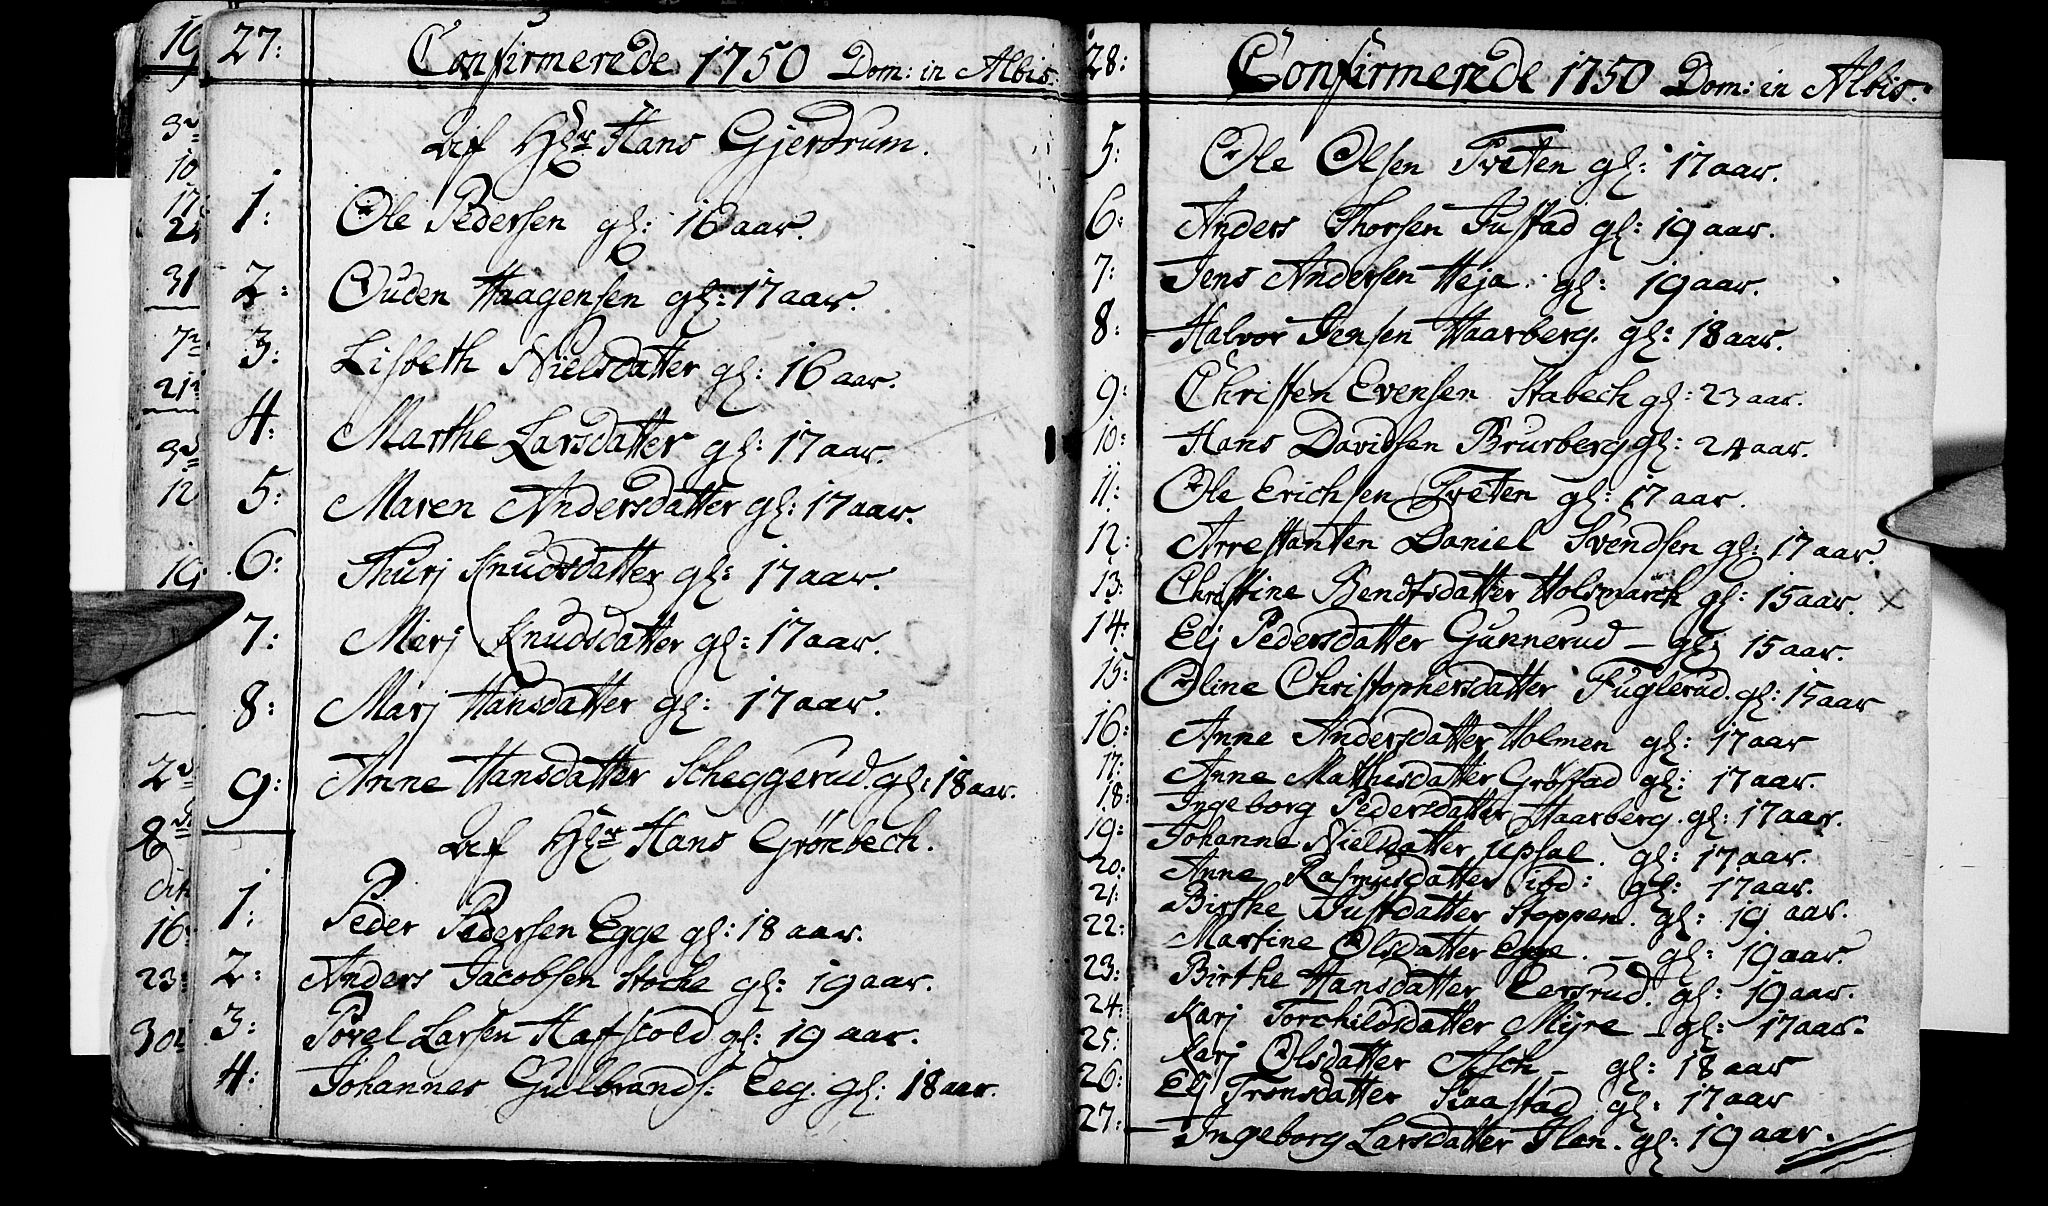 27: Confirmerede 1750 Dom: in Albis.
Af Hr Hans Gjerdrum.
1: Ole Pedersen gl: 16 aar.
2: Ouden Haagensen gl: 17 aar.
3: Lisbeth Nielsdatter gl: 16 aar.
4: Marthe Larsdatter gl: 17 aar.
5: Maren Andersdatter gl: 17 aar.
6: Thurj Knudsdatter gl: 17 aar.
7: Marj Knudsdatter gl: 17 aar.
8: Marj Hansdatter gl: 17 aar.
9: Anne Hansdatter Scheggerud. gl: 18 aar.
Af Hr Hans Grönbech.
1: Peder Pedersen Egge gl: 18 aar.
2: Anders Jacobsen Stocke gl: 19 aar.
3: Povel Larsen Hafscold gl: 19 aar.
4: Johannes Gulbrands: Eeg. gl: 18 aar.
28: Confirmerede 1750 Dom: in Albis.
5: Ole Olsen Tveten gl: 17 aar.
6: Anders Thorsen Justad gl: 19 aar.
7: Jens Andersen Heja. gl: 19 aar.
8: Halvor Jensen Haarberg. gl: 18 aar.
9: Christen Evensen Stabech gl: 23 aar.
10: Hans Davidsen Brurberg gl: 24 aar.
11: Ole Erichsen Tveten gl: 17 aar.
12: Arrestanten Daniel Svendsen gl: 17 aar.
13: Christine Bendtsdatter Holsmarck gl: 15 aar. x
14: Elj Pedersdatter Gunnerud - gl: 15 aar.
15: Oline Christophersdatter Fuglerud. gl: 15 aar
16: Anne Andersdatter Holmen gl: 17 aar
17: Anne Mathisdatter Gröstad gl: 17 aar.
18: Ingeborg Pedersdatter Haarberg. gl: 17 aar.
19: Johanne Nielsdatter Upsal. gl: 17 aar.
20: Anne Rasmusdatter ibd: gl: 17 aar.
21: Birthe Justdatter Stoppen. gl: 19 aar.
22: Martine Olsdatter Egge. - gl: 19 aar.
23: Birthe Hansdatter Eersrud. gl: 19 aar.
24: Karj Torchildsdatter Myre - gl: 17 aar.
25: Karj Olsdatter Asch - gl: 18 aar
26: Elj Tronsdatter Kaastad gl: 17 aar
27: Ingeborg Larsdatter gl: 19 aar.